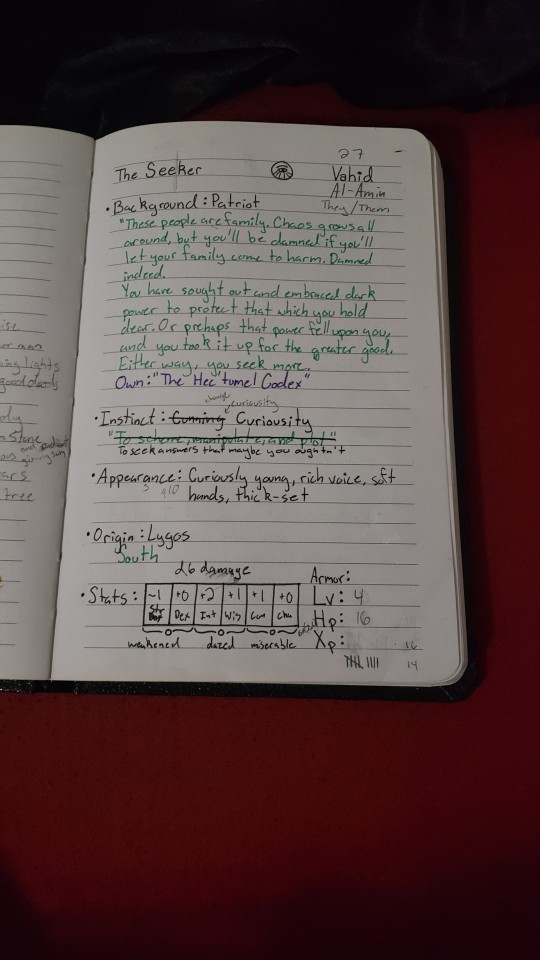 ise
ing lights
good deeds
ars
tree
27
The Seeker
Vahid
Al-Amin
They/Them
• Background: Patriot
"These people are family. Chaos grows all
around, but you'll be damned if you'll
let your family come to harm. Damned
indeed.
You have sought out and embraced dark
power to protect that which you hold
dear. Or prehaps that power fell upon you,
and you took it up for the greater good.
Either way, you seek more.
Own: "The Hec'tumel Codex"
change
curiousity
• Instinct: Cunning Curiousity
"To scheme, manipulate, and plot"
To seek answers that maybe you oughtn't
• Appearance: Curiously young, rich voice, soft
hands, thick-set
• Origin: Lygos
South
d6 damage
Armor:
• Stats: -1 +0 +2 +1 +1 +0
Str Dex Int Wis Con Cha
weakened dazed miserable
Lv: 4
Hp: 16
Xp:
16
14